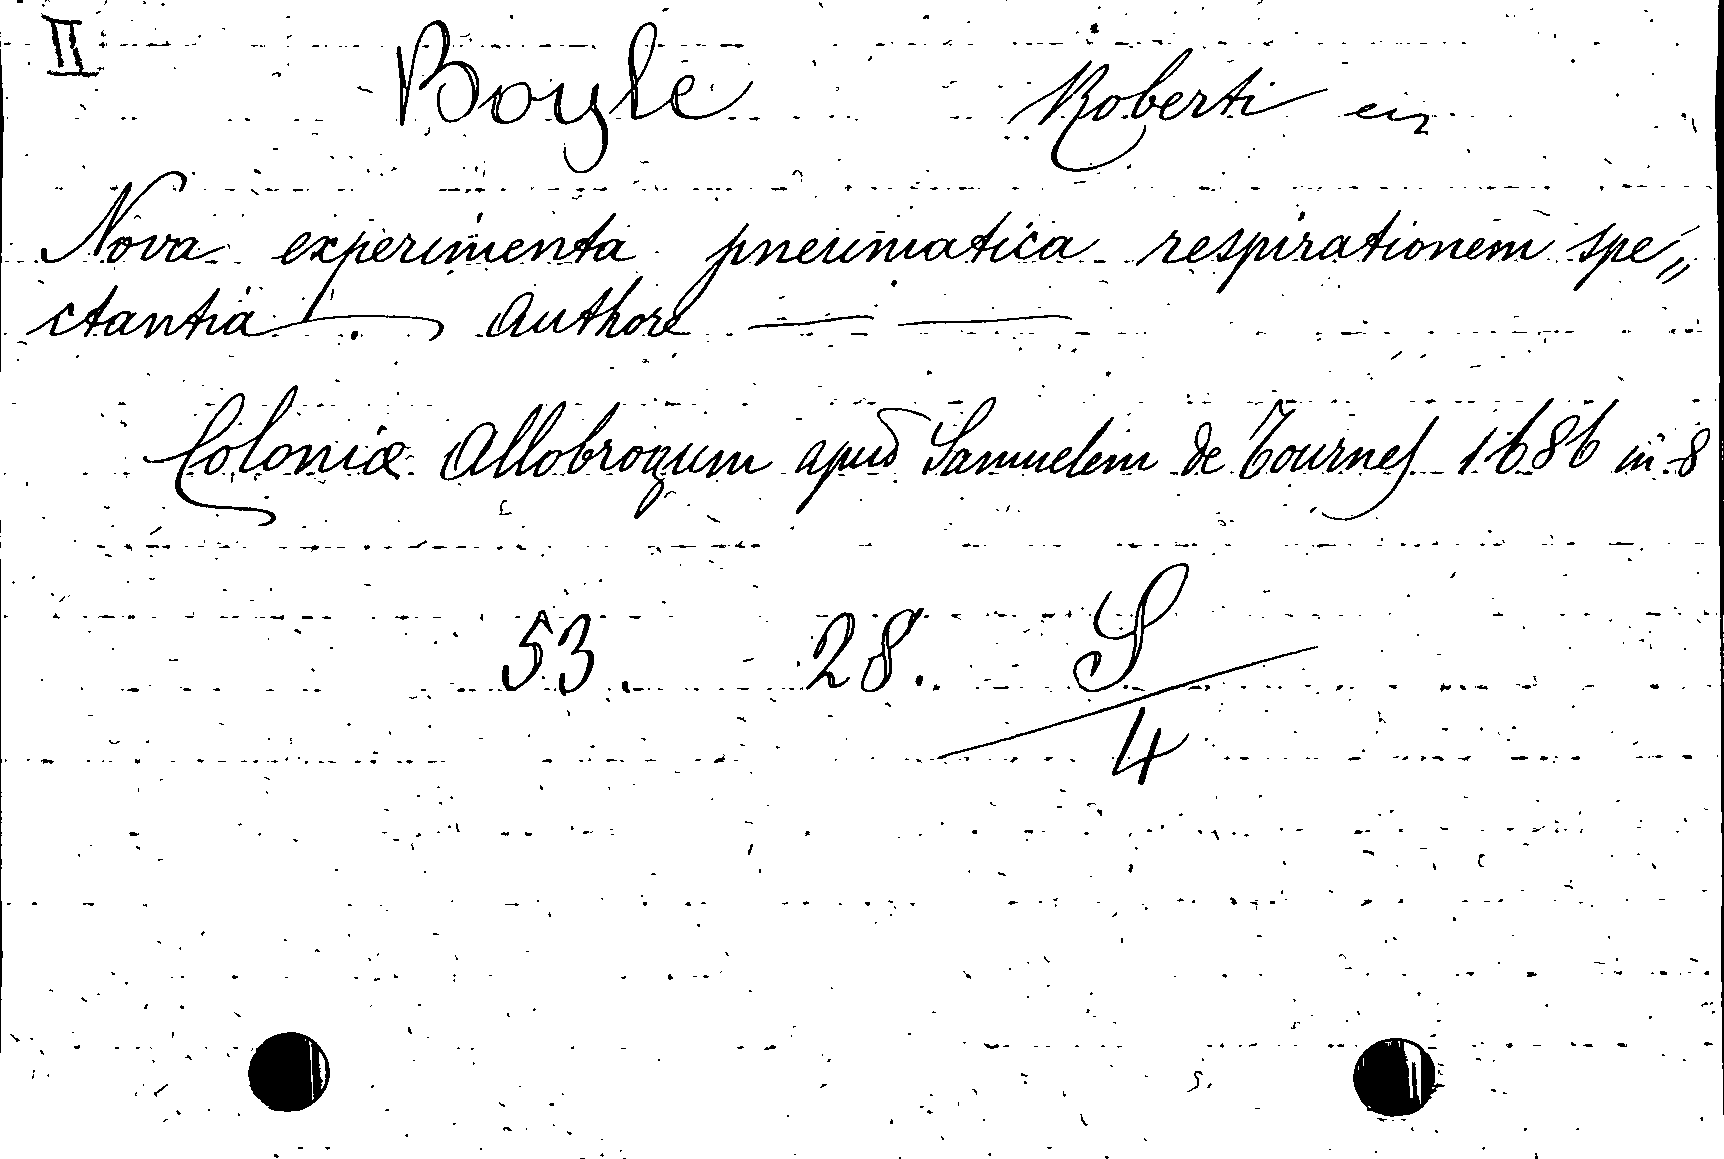 II Boyle Roberti
Nova experimenta pneumatica respirationem spe„
ctantia — Authore — —
Coloniæ Allobrogum apud Samuelem de Tournes 1686 in 8
53. 28. S/4